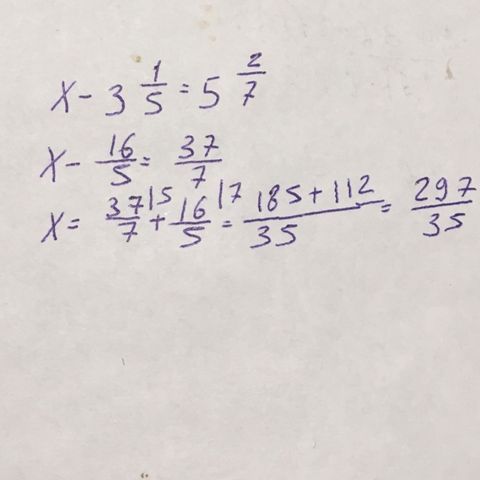 x - 3 1/5 = 5 2/7
x - 16/5 = 37/7
x = 37/7 |5 + 16/5 |7 = 185+112/35 = 297/35